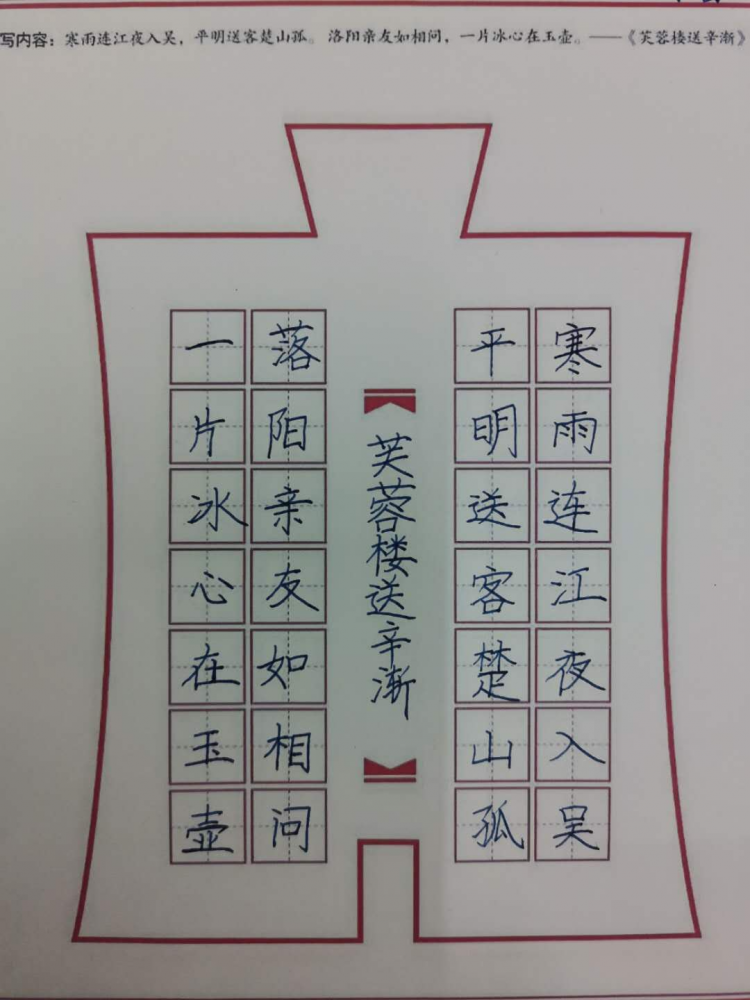 写内容：寒雨连江夜入吴，平明送客楚山孤。洛阳亲友如相问，一片冰心在玉壶。——《芙蓉楼送辛渐》
寒雨连江夜入吴
平明送客楚山孤
芙蓉楼送辛渐
落阳亲友如相问
一片冰心在玉壶